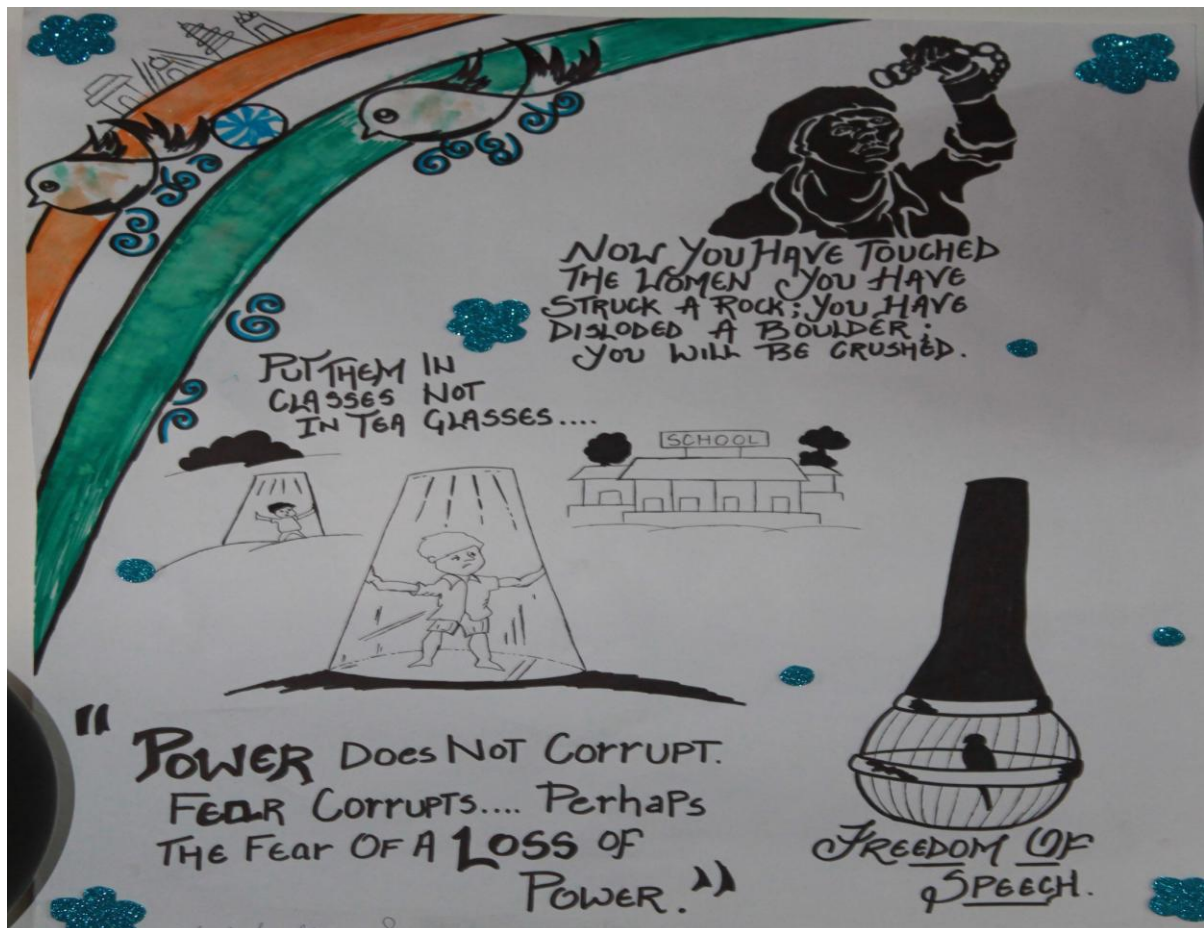 NOW YOU HAVE TOUCHED
THE WOMEN YOU HAVE
STRUCK A ROCK; YOU HAVE
DISLODED A BOULDER;
YOU WILL BE CRUSHED.
PUT THEM IN
CLASSES NOT
IN TEA GLASSES....
SCHOOL
"POWER DOES NOT CORRUPT.
FEAR CORRUPTS.... PERHAPS
THE FEAR OF A LOSS OF
POWER."
FREEDOM OF
SPEECH.